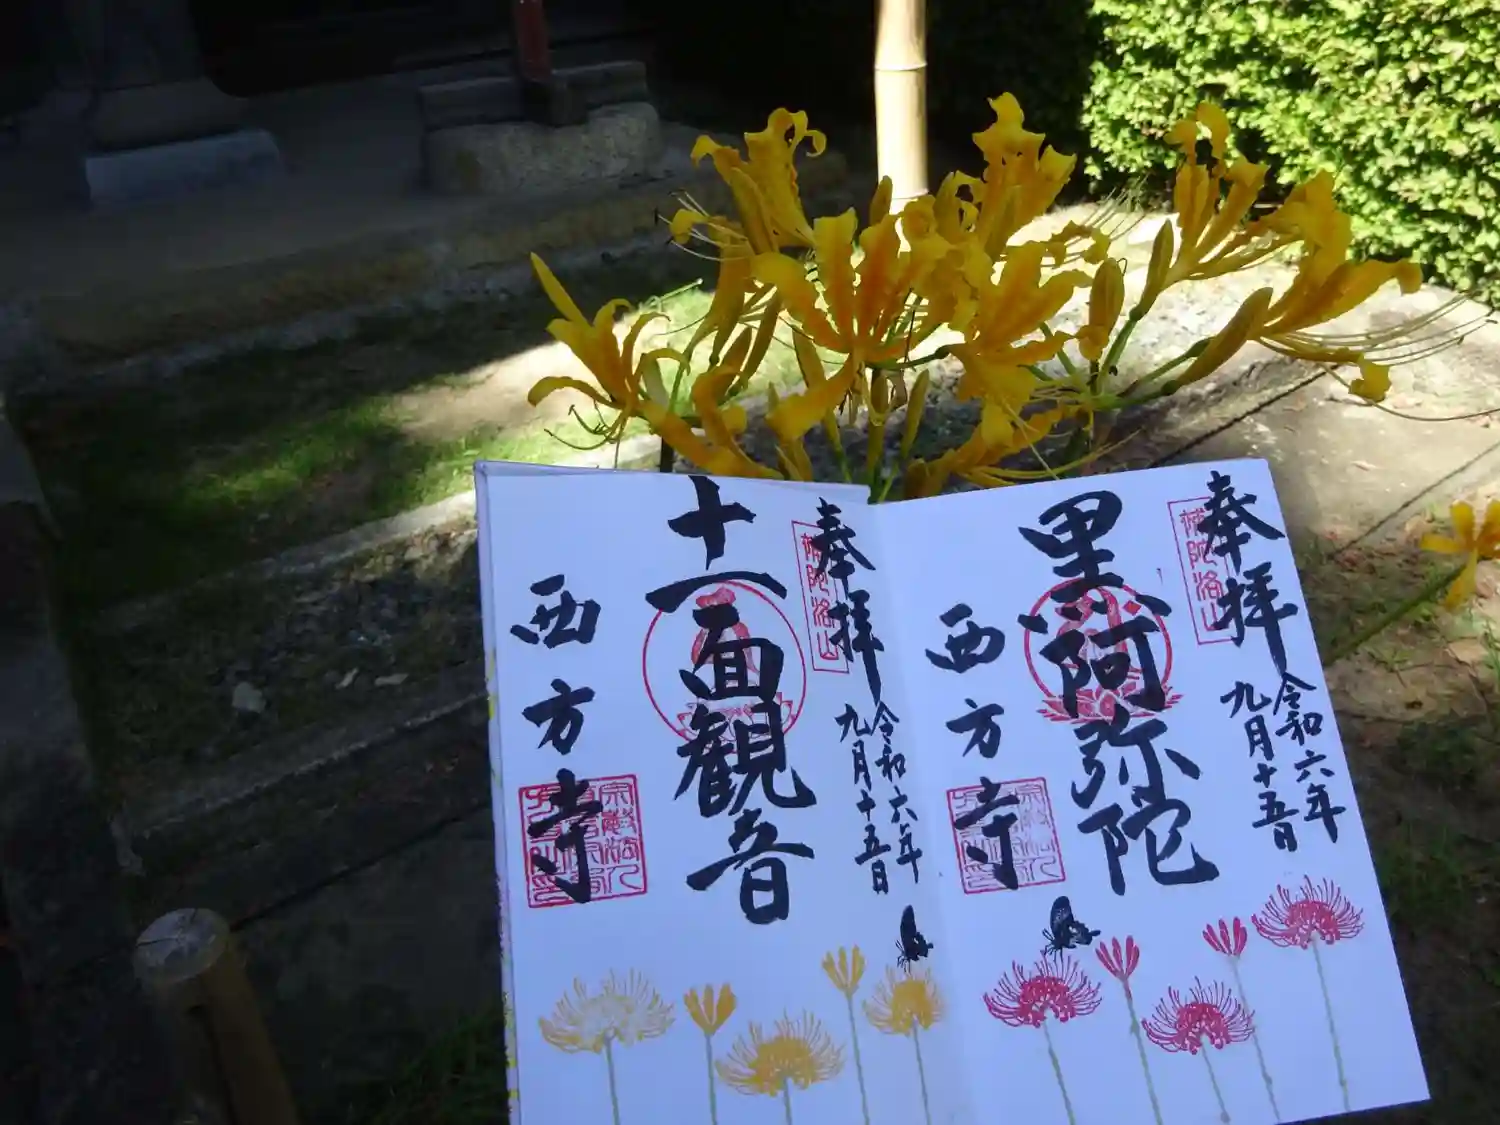 奉拝
補陀洛山
令和六年
九月十五日
黒阿弥陀
西方寺
奉拝
補陀洛山
令和六年
九月十五日
十一面観音
西方寺